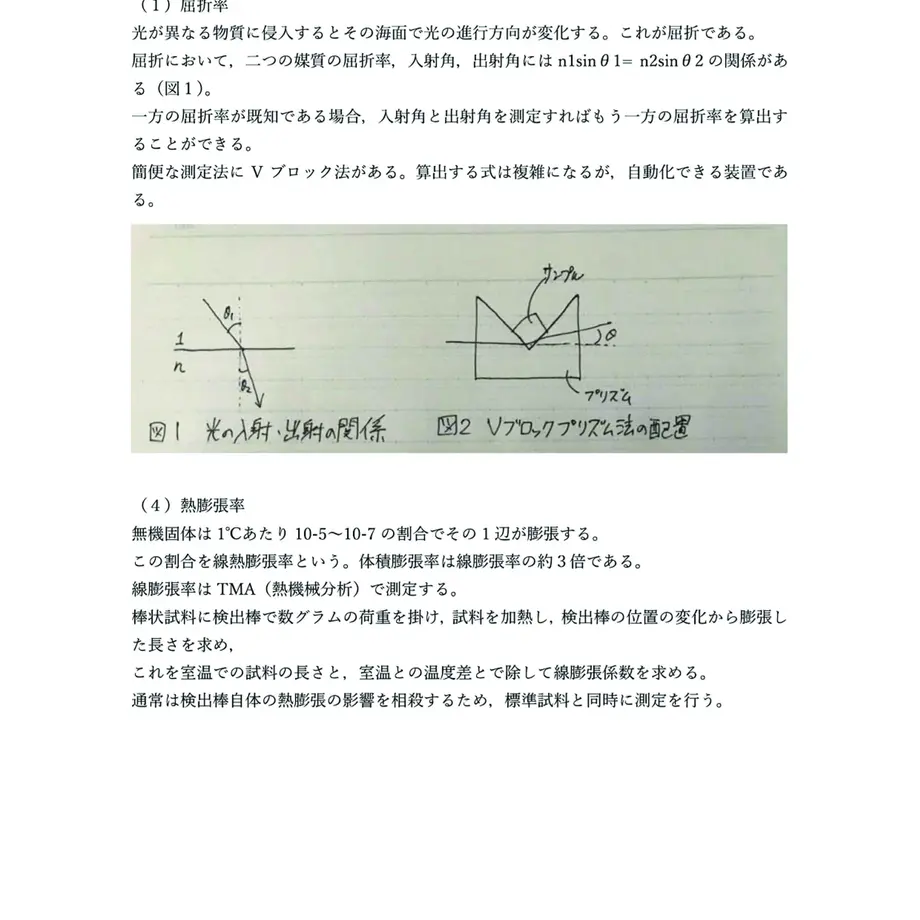 （１）屈折率
光が異なる物質に侵入するとその海面で光の進行方向が変化する。これが屈折である。
屈折において，二つの媒質の屈折率，入射角，出射角には n1sinθ1= n2sinθ2 の関係があ
る（図１）。
一方の屈折率が既知である場合，入射角と出射角を測定すればもう一方の屈折率を算出す
ることができる。
簡便な測定法に V ブロック法がある。算出する式は複雑になるが，自動化できる装置であ
る。
サンプル
θ1
1
n
θ2
θ
プリズム
図1 光の入射、出射の関係
図2 Vブロックプリズム法の配置
（４）熱膨張率
無機固体は 1℃あたり 10-5～10-7 の割合でその１辺が膨張する。
この割合を線熱膨張率という。体積膨張率は線膨張率の約３倍である。
線膨張率は TMA（熱機械分析）で測定する。
棒状試料に検出棒で数グラムの荷重を掛け，試料を加熱し，検出棒の位置の変化から膨張し
た長さを求め，
これを室温での試料の長さと，室温との温度差とで除して線膨張係数を求める。
通常は検出棒自体の熱膨張の影響を相殺するため，標準試料と同時に測定を行う。